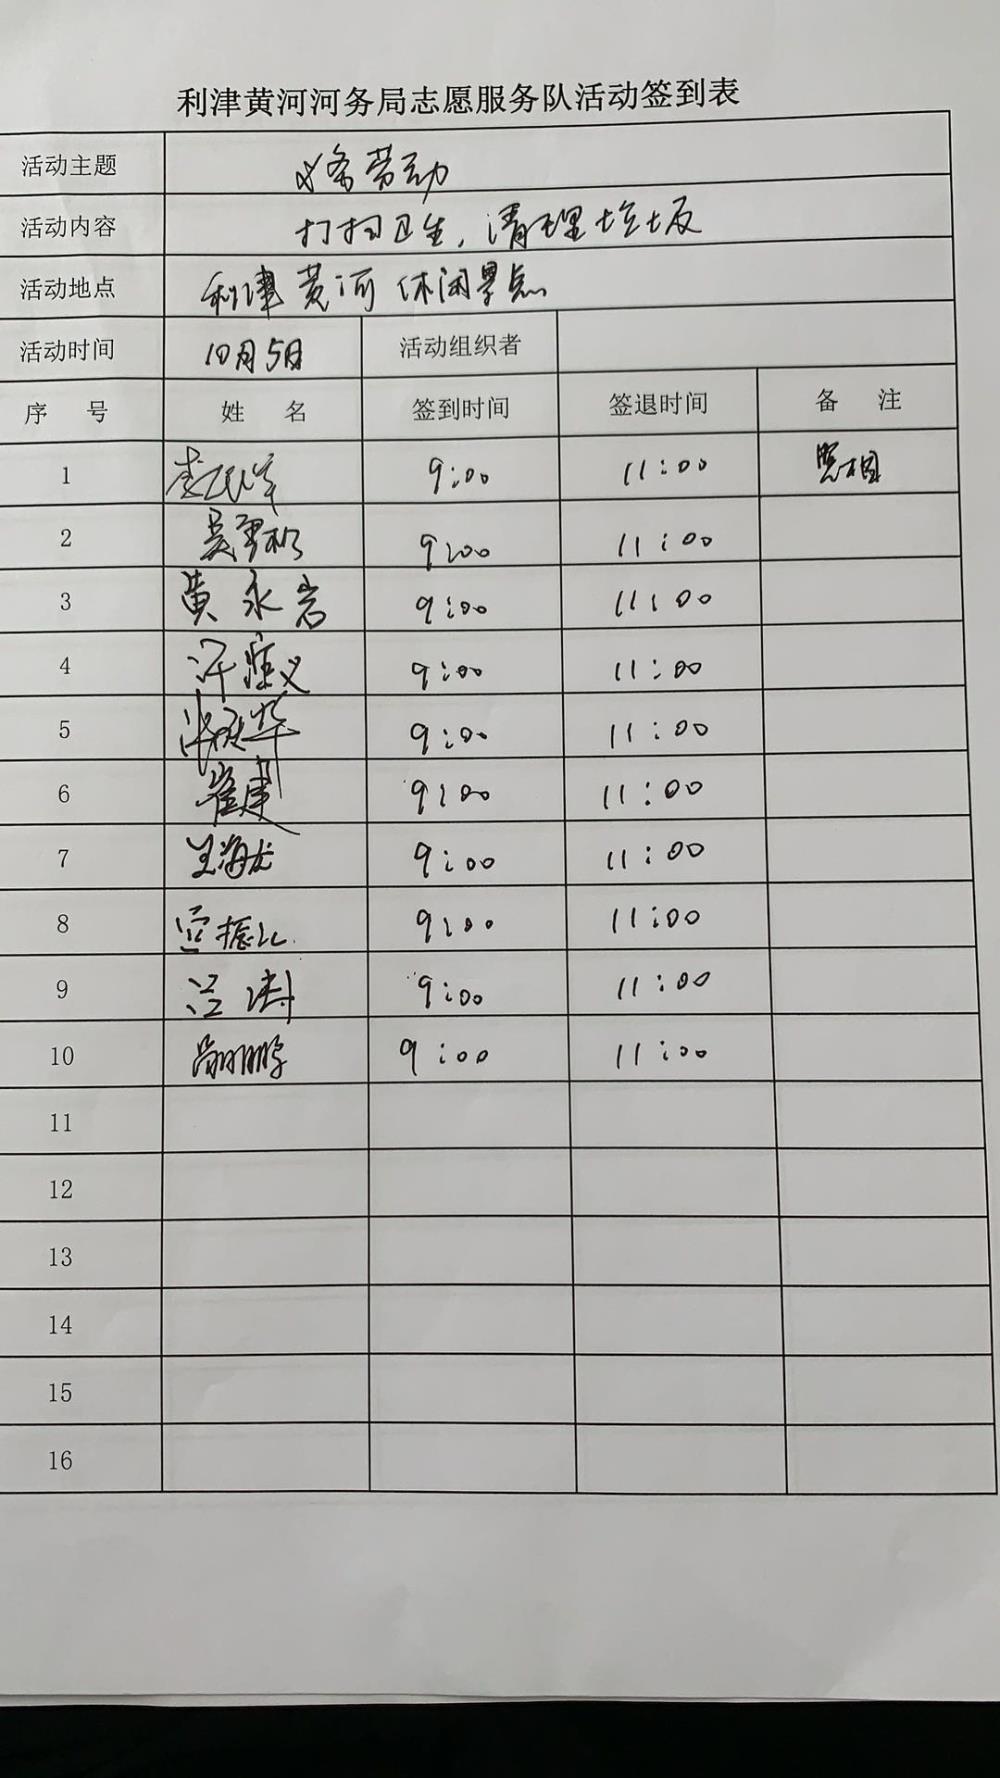 利津黄河河务局志愿服务队活动签到表
活动主题 义务劳动
活动内容 打扫卫生,清理垃圾
活动地点 利津黄河休闲景点
活动时间 10月5日 活动组织者
序 号 姓 名 签到时间 签退时间 备 注
1 9:00 11:00 照相
2 9:00 11:00
3 黄永岩 9:00 11:00
4 9:00 11:00
5 9:00 11:00
6 崔建 9:00 11:00
7 王海龙 9:00 11:00
8 9:00 11:00
9 吕涛 9:00 11:00
10 9:00 11:00
11
12
13
14
15
16